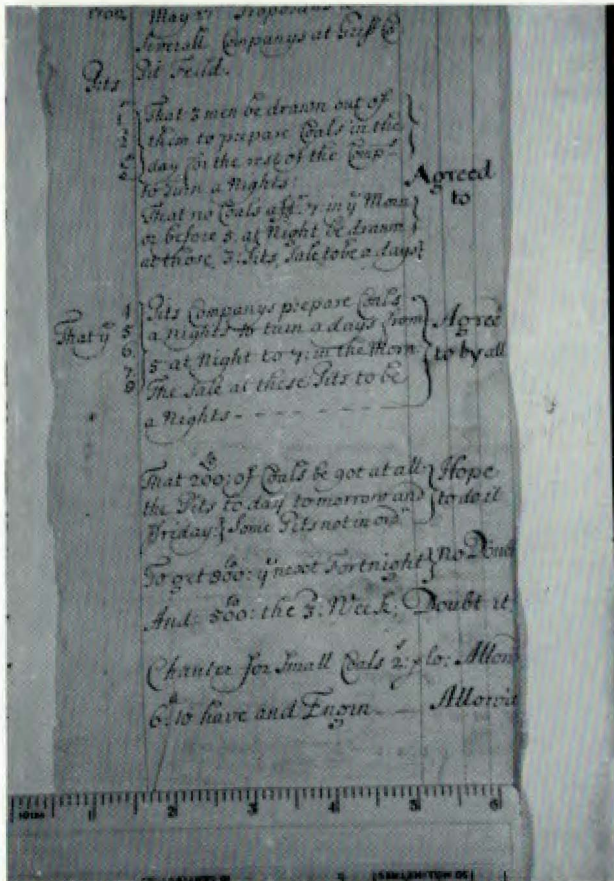 May 27 Proposals
Severall Companys at Griff Co
Pits Pit Feild.
1 That 3 men be drawn out of
2 them to prepare Coals in the
day for the rest of the Comp
to turn a Nights:
Agreed to
That no Coals aft 7: in yͤ Morn
or before 5 at Night be drawn
at those 3: Pits, Sale to be a days
That yͤ
4 Pits Companys prepare Coals
5 a Nights to turn a days from
6 5 at Night to 7: in the Morn
7 The Sale at these Pits to be
8 a Nights - - - - - - - -
Agree
to by all
That 200: of Coals be got at all Hope
the Pits to day to morrow and to do it
Friday: Some Pits not in
To get 800: yͤ next Fortnight no Doubt
And: 500: the 3: Week, Doubt it
Chanter for Small Coals 2: Allow
6ᵈ to have and Engin - - Allowd
1 2 3 4 5 6